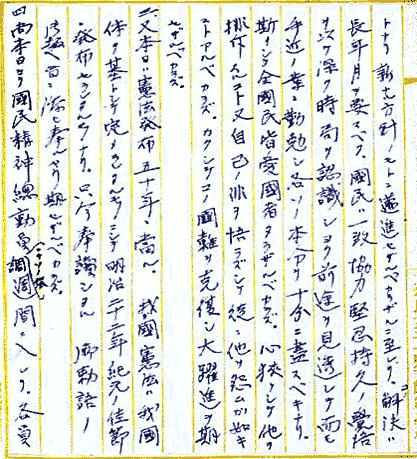 トナリ新大方針ノモトニ邁進セザルベカラザルニ至レリ。解決ニハ
長年月ヲ要スベク、國民ハ一致協力堅忍持久ノ覺悟
ヲ以テ深ク時局ヲ認識シヨク前途ヲ見透シテ而モ
手近ノ業ニ勤勉シ各ソノ本分ヲ十分ニ盡スベキナリ。
斯クシテ全國民皆愛國者タラザルベカラズ。心狹クシテ他ヲ
排斥スルコト又自己ノ非ヲ悟ラズシテ徒ニ他ヲ怨ムガ如キ
コトアルベカラズ。カクシテコノ國難ヲ克復シ大躍進ヲ期
セザルベカラズ。
三、又本日ハ憲法發布五十年ニ當ル。我ガ國憲法ハ我ガ國
體ヲ基トシテ定メラレタルモノニシテ明治二十二年紀元ノ佳節
ニ發布セラレタルナリ。只今奉讀シタル御勅語ノ
御趣旨ニ添ヒ奉ランコトヲ期セザルベカラズ。
四、尚本日ヨリ國民精神總動員強調週間ニ入レリ。各員